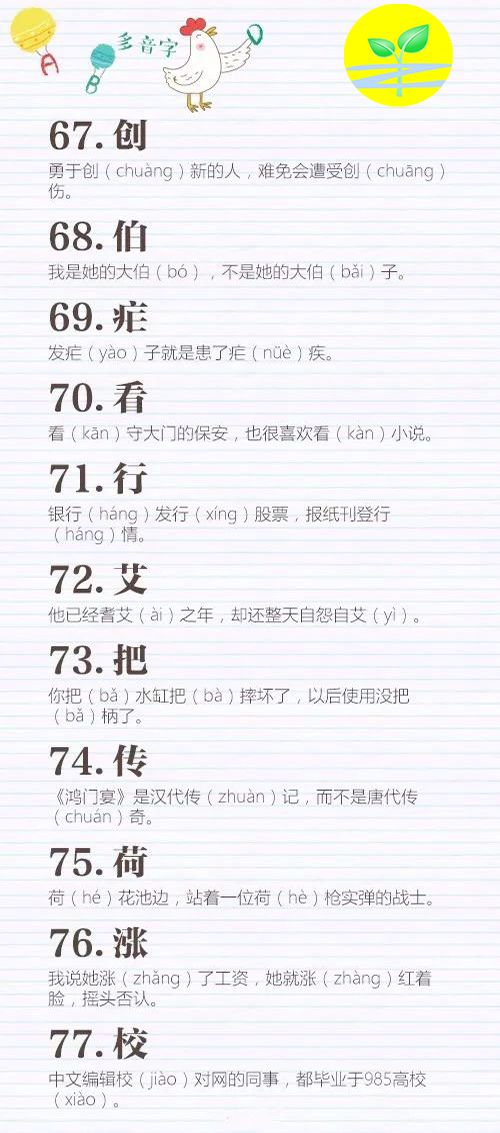 多音字
A
B
D
67.创
勇于创（chuàng）新的人，难免会遭受创（chuāng）
伤。
68.伯
我是她的大伯（bó），不是她的大伯（bǎi）子。
69.疟
发疟（yào）子就是患了疟（nüè）疾。
70.看
看（kān）守大门的保安，也很喜欢看（kàn）小说。
71.行
银行（háng）发行（xíng）股票，报纸刊登行
（háng）情。
72.艾
他已经耆艾（ài）之年，却还整天自怨自艾（yì）。
73.把
你把（bǎ）水缸把（bà）摔坏了，以后使用没把
（bǎ）柄了。
74.传
《鸿门宴》是汉代传（zhuàn）记，而不是唐代传
（chuán）奇。
75.荷
荷（hé）花池边，站着一位荷（hè）枪实弹的战士。
76.涨
我说她涨（zhǎng）了工资，她就涨（zhàng）红着
脸，摇头否认。
77.校
中文编辑校（jiào）对网的同事，都毕业于985高校
（xiào）。